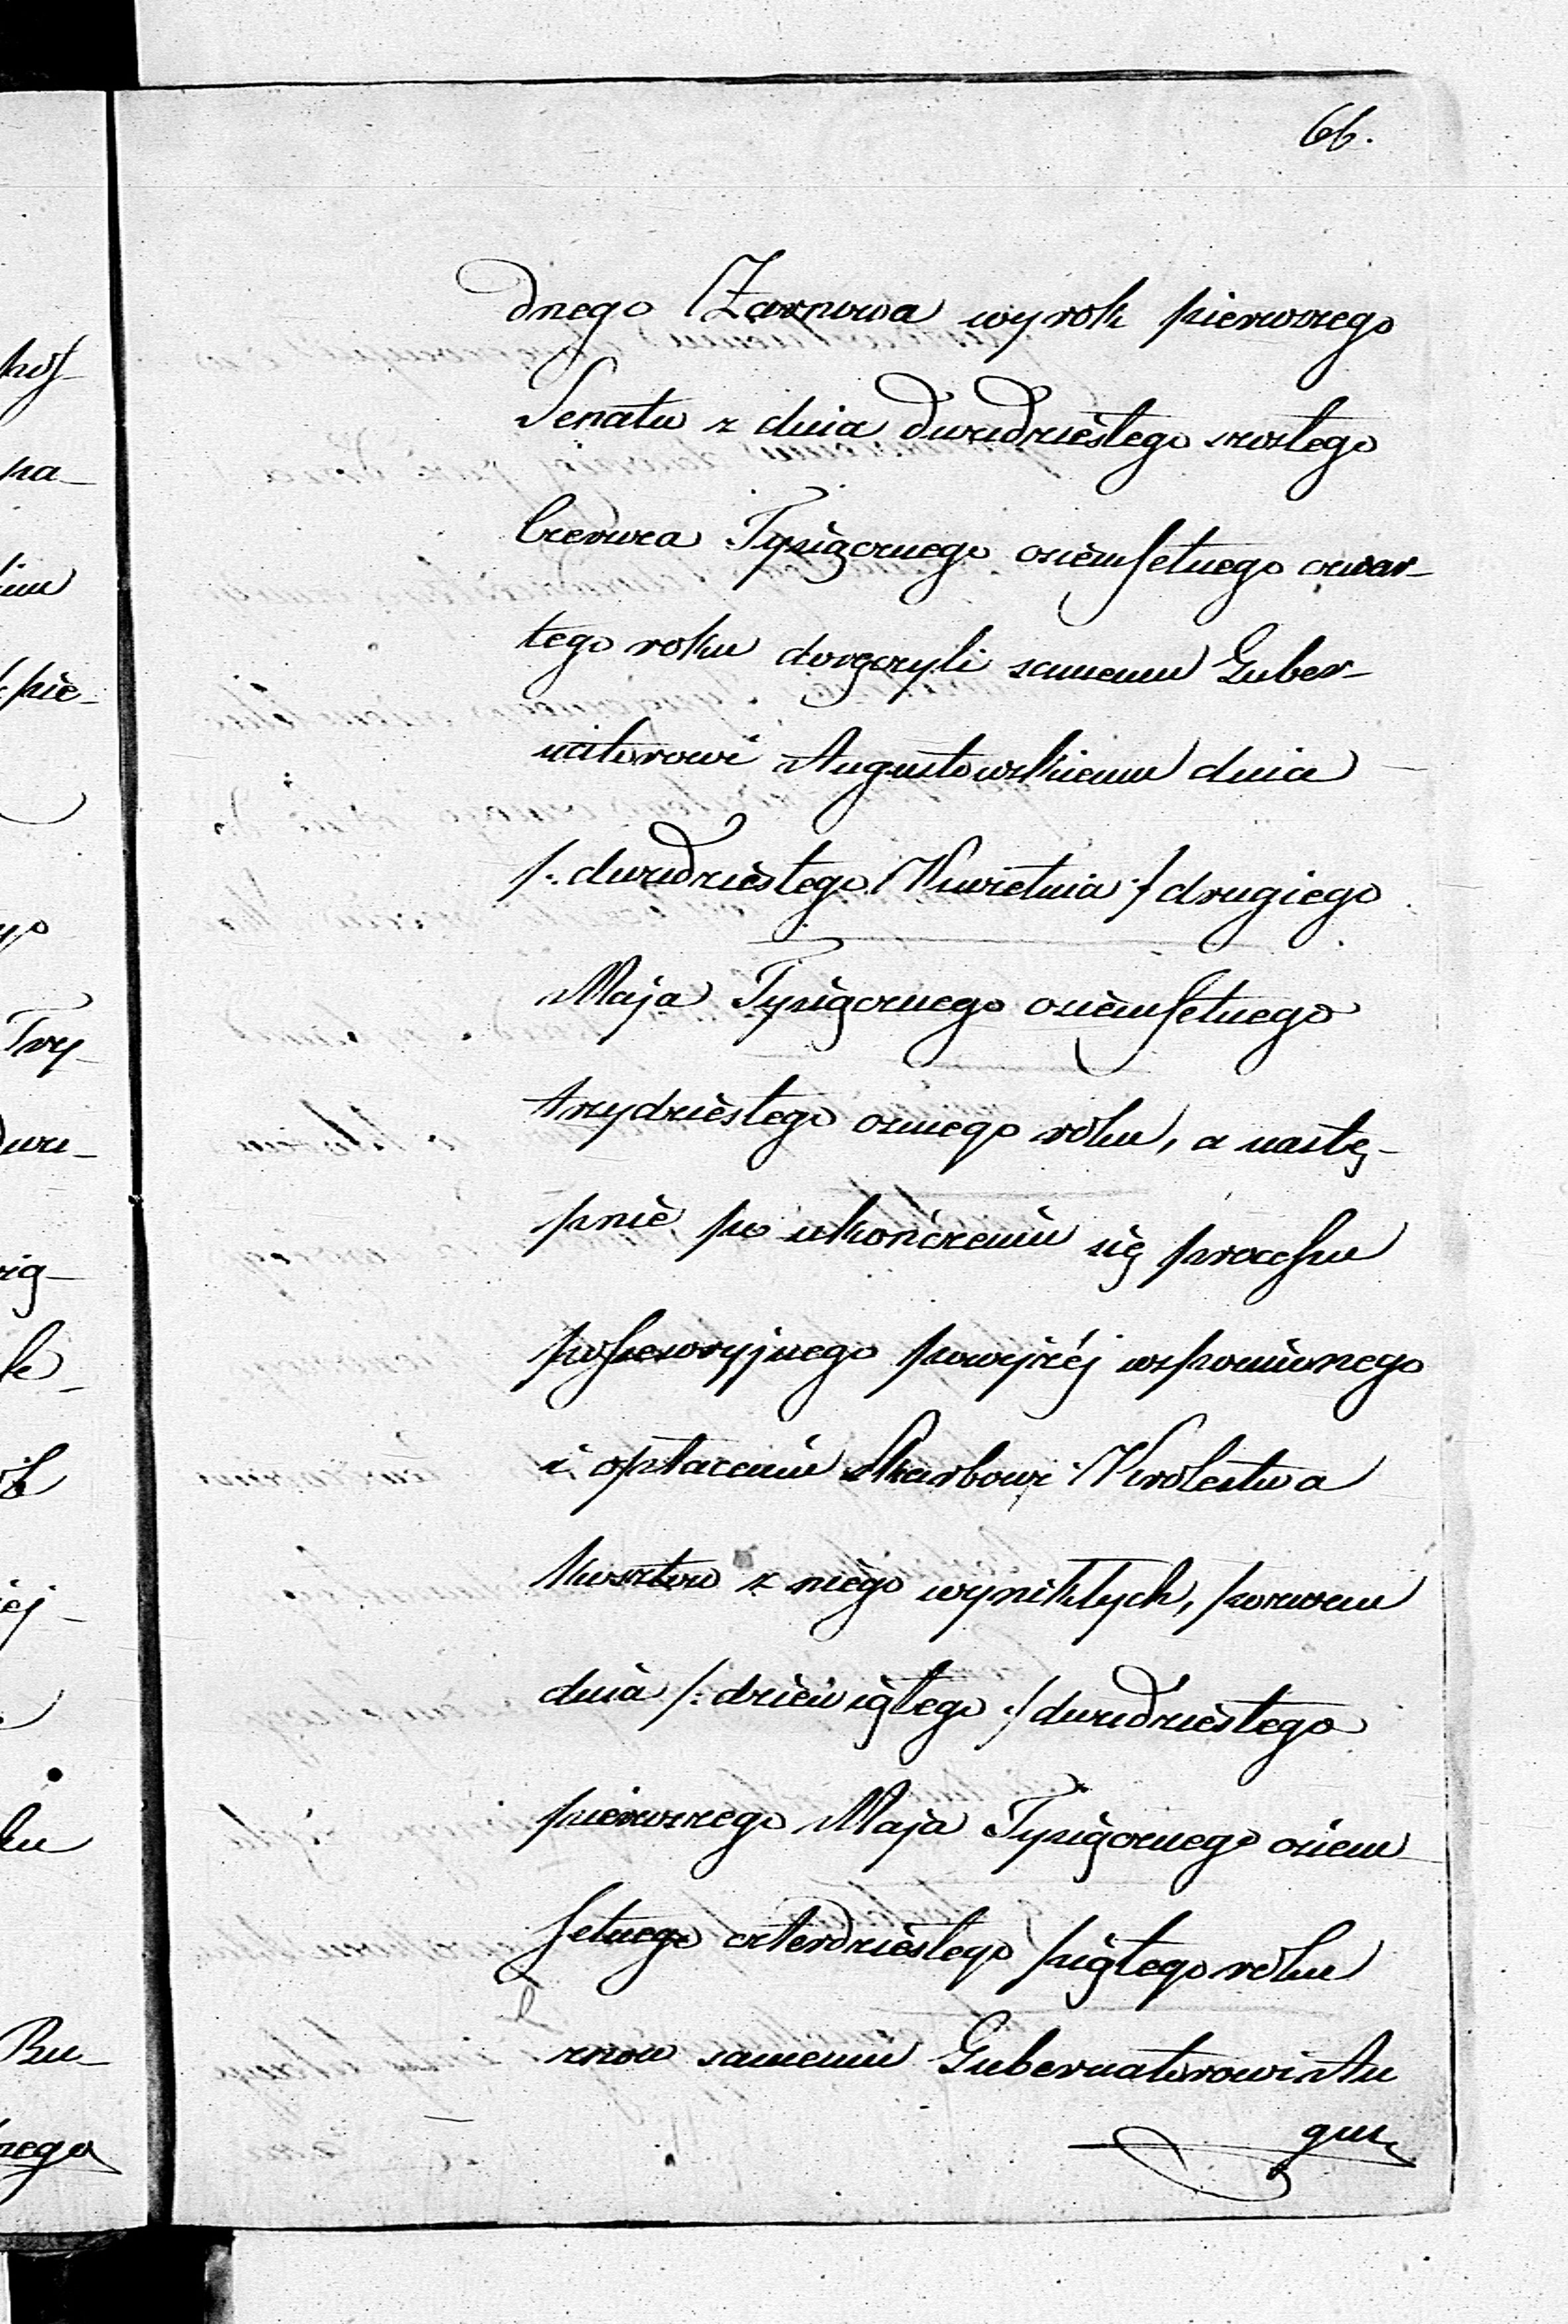 66.
dnego Czarnowa wyrok pierwszego
Senatu z dnia dwudziestego szóstego
Czerwca Tysiącznego ośiemsetnego czwar-
tego roku doręczyli samemu Guber-
natorowi Augustowskiemu dnia
/: dwudziestego Kwietnia :/ drugiego
Maja Tysiącznego ośiemsetnego
trzydziestego osmego roku, a nastę-
pnie, po ukończeniu się processu
possessoryjnego powyżéj wspomionego
i opłaceniu Skarbowi Krolestwa
kosztow z niego wynikłych, pozwem
dnia /: dziewiątego :/ dwudziestego
pierwszego Maja Tysiącznego ośiem
setnego czterdziestego piątego roku
znow samemu Gubernatorowi Au
gus
hos
pa-
pie-
Try-
dwu-
Bu-
nego